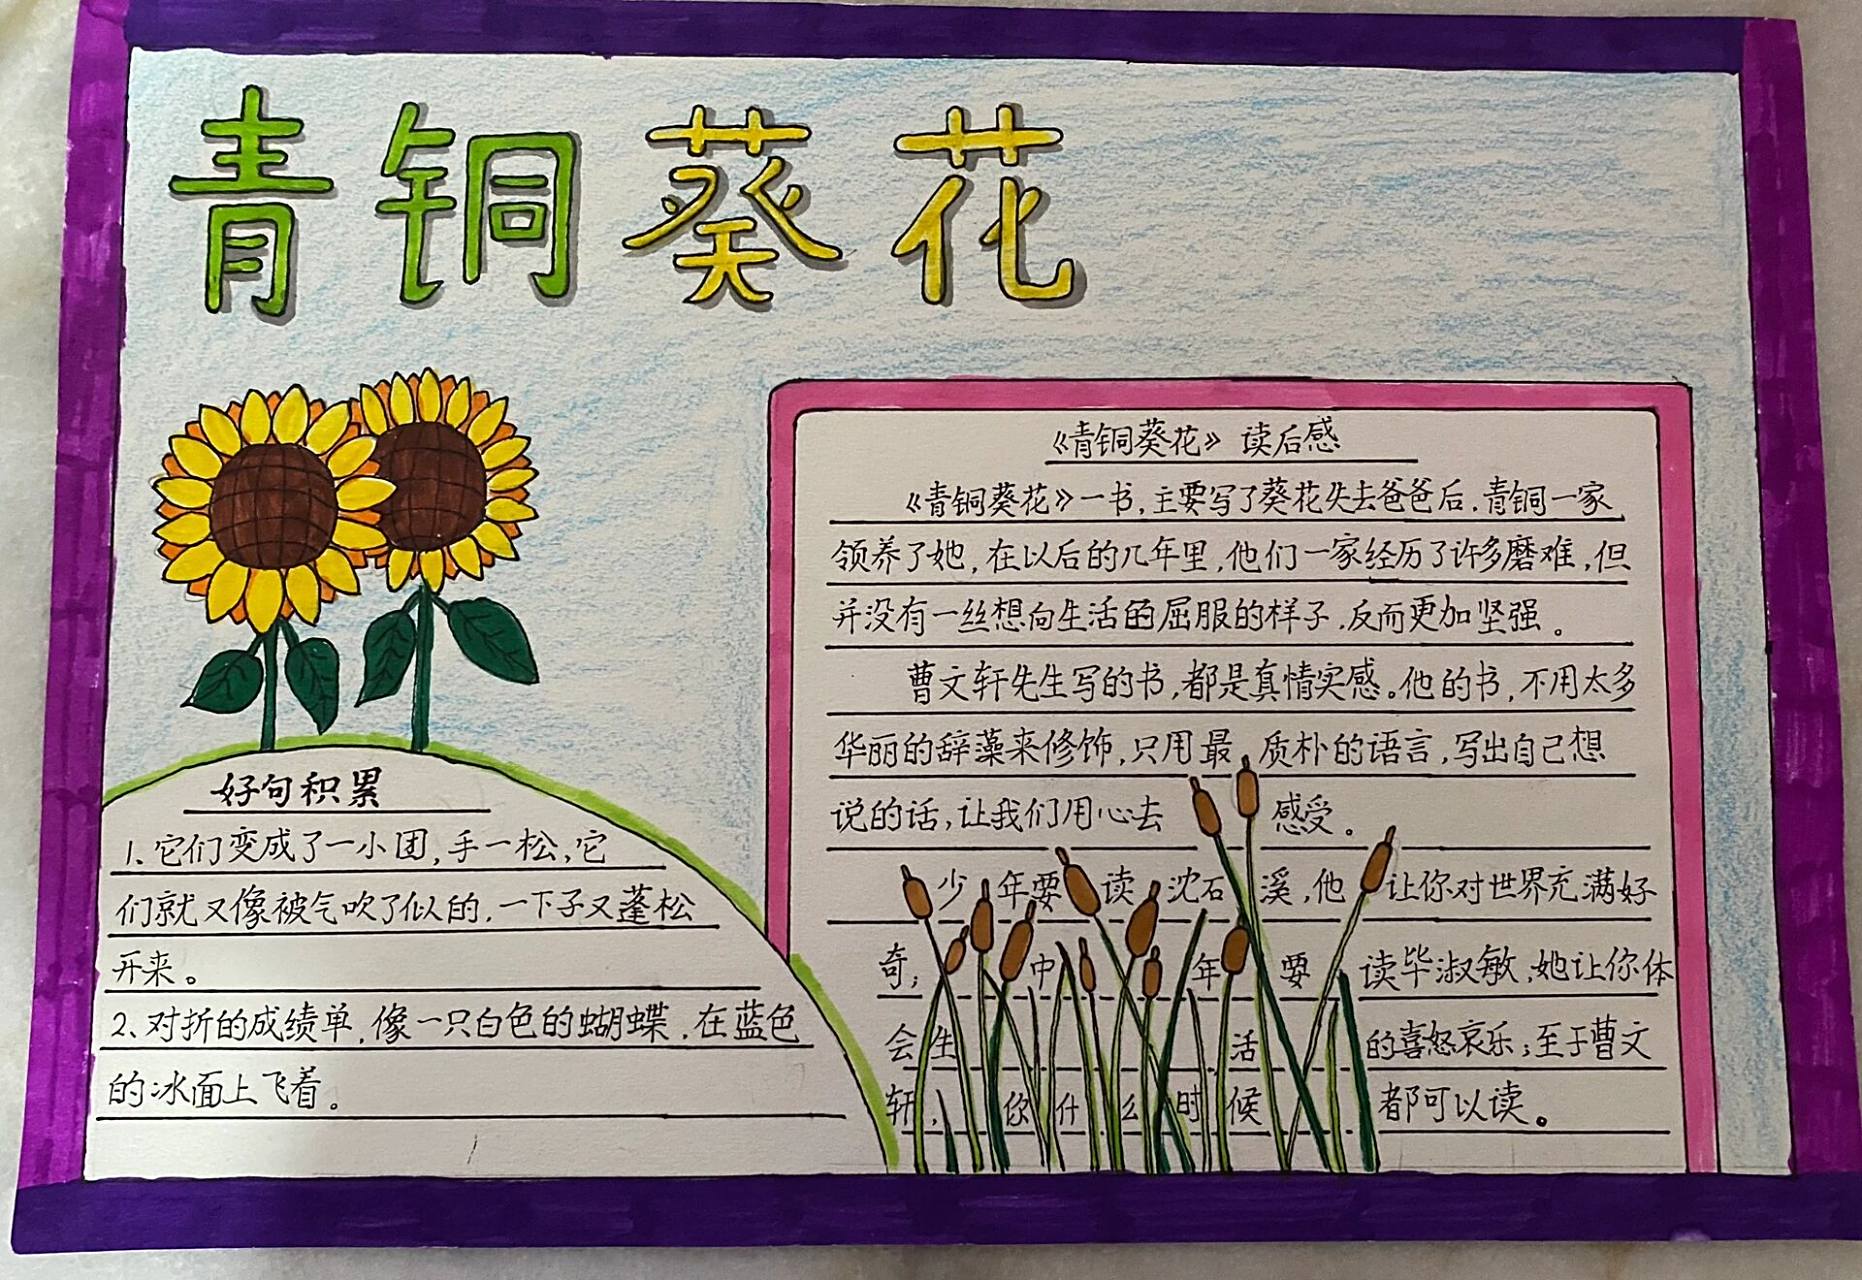 青铜葵花
好句积累
1、它们变成了一小团,手一松,它
们就又像被气吹了似的,一下子又蓬松
开来。
2、对折的成绩单,像一只白色的蝴蝶,在蓝色
的冰面上飞着。
《青铜葵花》读后感
《青铜葵花》一书,主要写了葵花失去爸爸后,青铜一家
领养了她,在以后的几年里,他们一家经历了许多磨难,但
并没有一丝想向生活的屈服的样子,反而更加坚强。
曹文轩先生写的书,都是真情实感。他的书,不用太多
华丽的辞藻来修饰,只用最质朴的语言,写出自己想
说的话,让我们用心去感受。
少年要读沈石溪,他让你对世界充满好
奇;中年要读毕淑敏,她让你体
会生活的喜怒哀乐;至于曹文
轩,你什么时候都可以读。